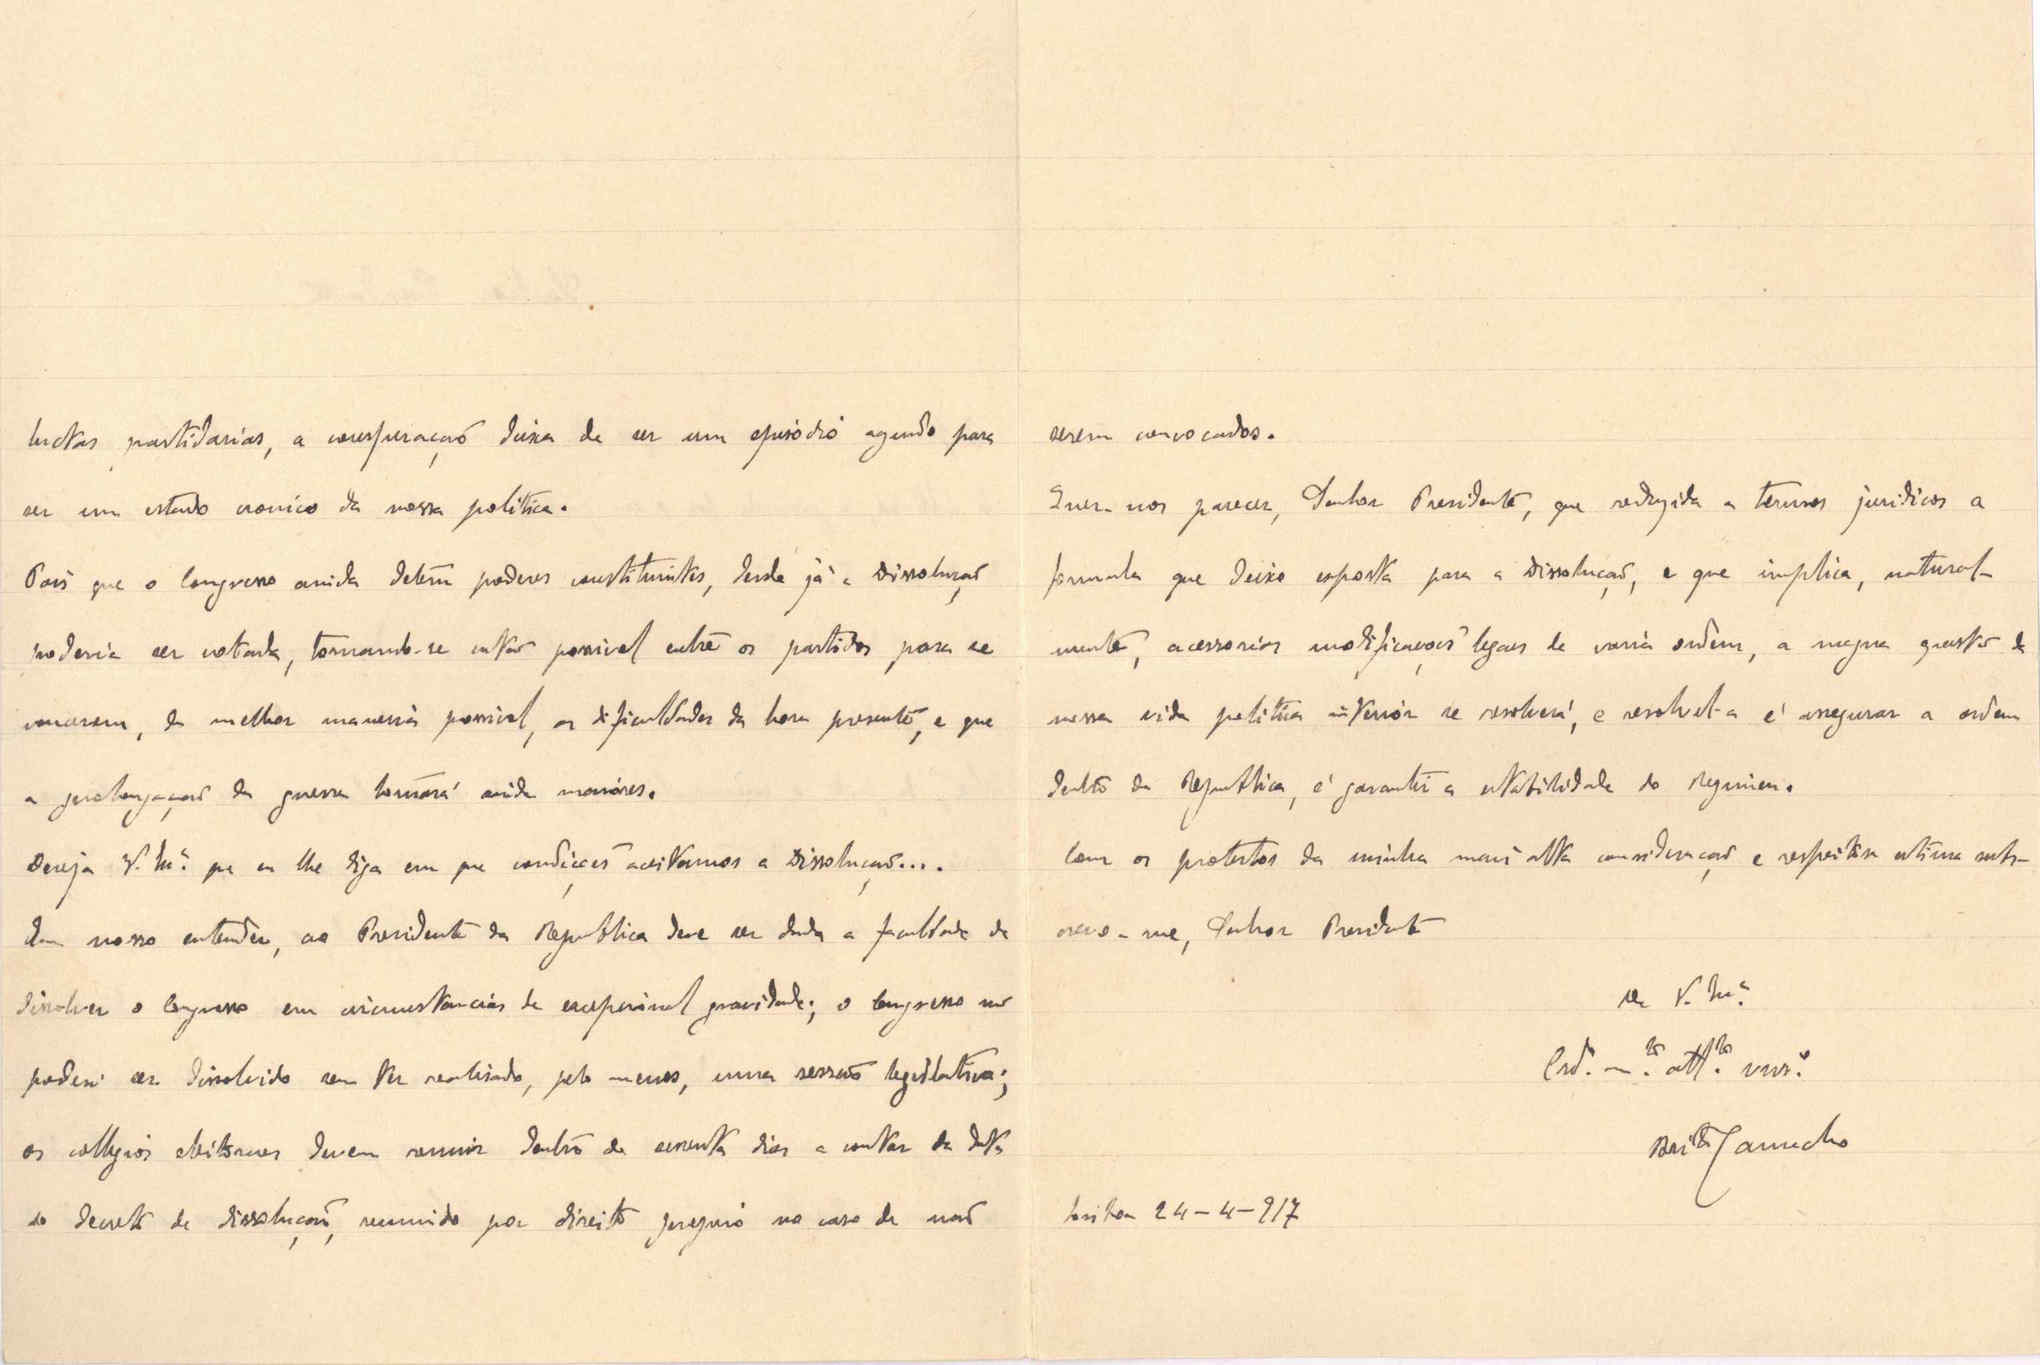 luctas partidarias, a conspiração deixa de ser um episódio agudo para
ser um estado cronico da nossa politica.
Pois que o Congresso ainda detem poderes constituintes, desde já a dissolução
poderia ser votada, tornando-se então possivel entre os partidos para se
vencerem, da melhor maneira possivel, as dificuldades da hora presente, e que
a prolongação da guerra tornará ainda maióres.
Deseja V. Exª. que eu lhe diga em que condições aceitamos a dissolução....
Em nosso entender, ao Presidente da Republica deve ser dada a faculdade de
dissolver o Congresso em circunstancias de excepcional gravidade; o Congresso não
poderá ser dissolvido sem ter realisado, pelo menos, uma sessão legislativa;
os collegios eleitoraes devem reunir dentro de sessenta dias a contar da data
do decreto de dissolução, reunindo por direito proprio no caso de não
serem convocados.
Quer-nos parecer, Senhor Presidente, que reduzida a termos juridicos a
formula que deixo exposta para a dissolução, e que implica, natural-
mente, acessorias modificações legaes de varia ordem, a magna questão da
nossa vida politica interiór se resolverá, e resolvel-a é assegurar a ordem
dentro da Republica, é garantir a estabilidade do Regimen.
Com os protestos da minha mais alta consideração e respeitosa estima subs-
crevo-me, Senhor Presidente
De V. Exª.
Crdº. mtº. attº. venrº.
Brito Camacho
Lisboa 24-4-917